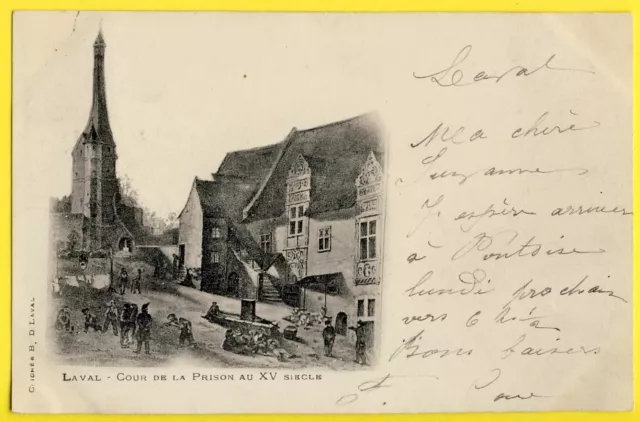 Laval
Ma chère
Suzanne
J'espère arriver
à Pontoise
lundi prochain
vers 6 h
Bons baisers
LAVAL - COUR DE LA PRISON AU XV SIECLE
CLICHES B, D LAVAL